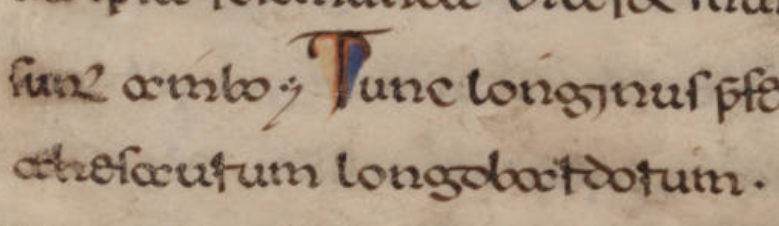 sunt ambo. Tunc longinus p̄fe
thesaurum longobardorum.